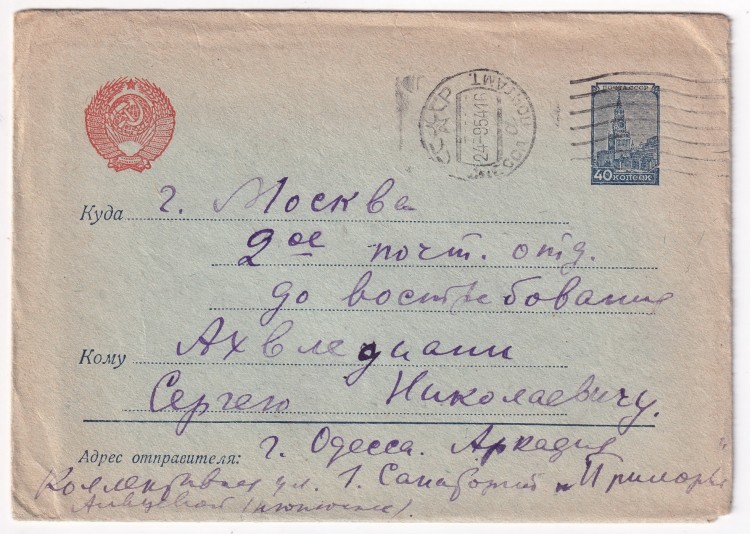 СССР
24-9-54 16
ПОЧТА СССР
40 КОПЕЕК
Куда г. Москва
2ое почт. отд.
до востребования
Кому Ахвледиани
Сергею Николаевичу.
Адрес отправителя: г. Одесса. Аркадия
Коллективная ул. 1. Санаторий "Приморье"